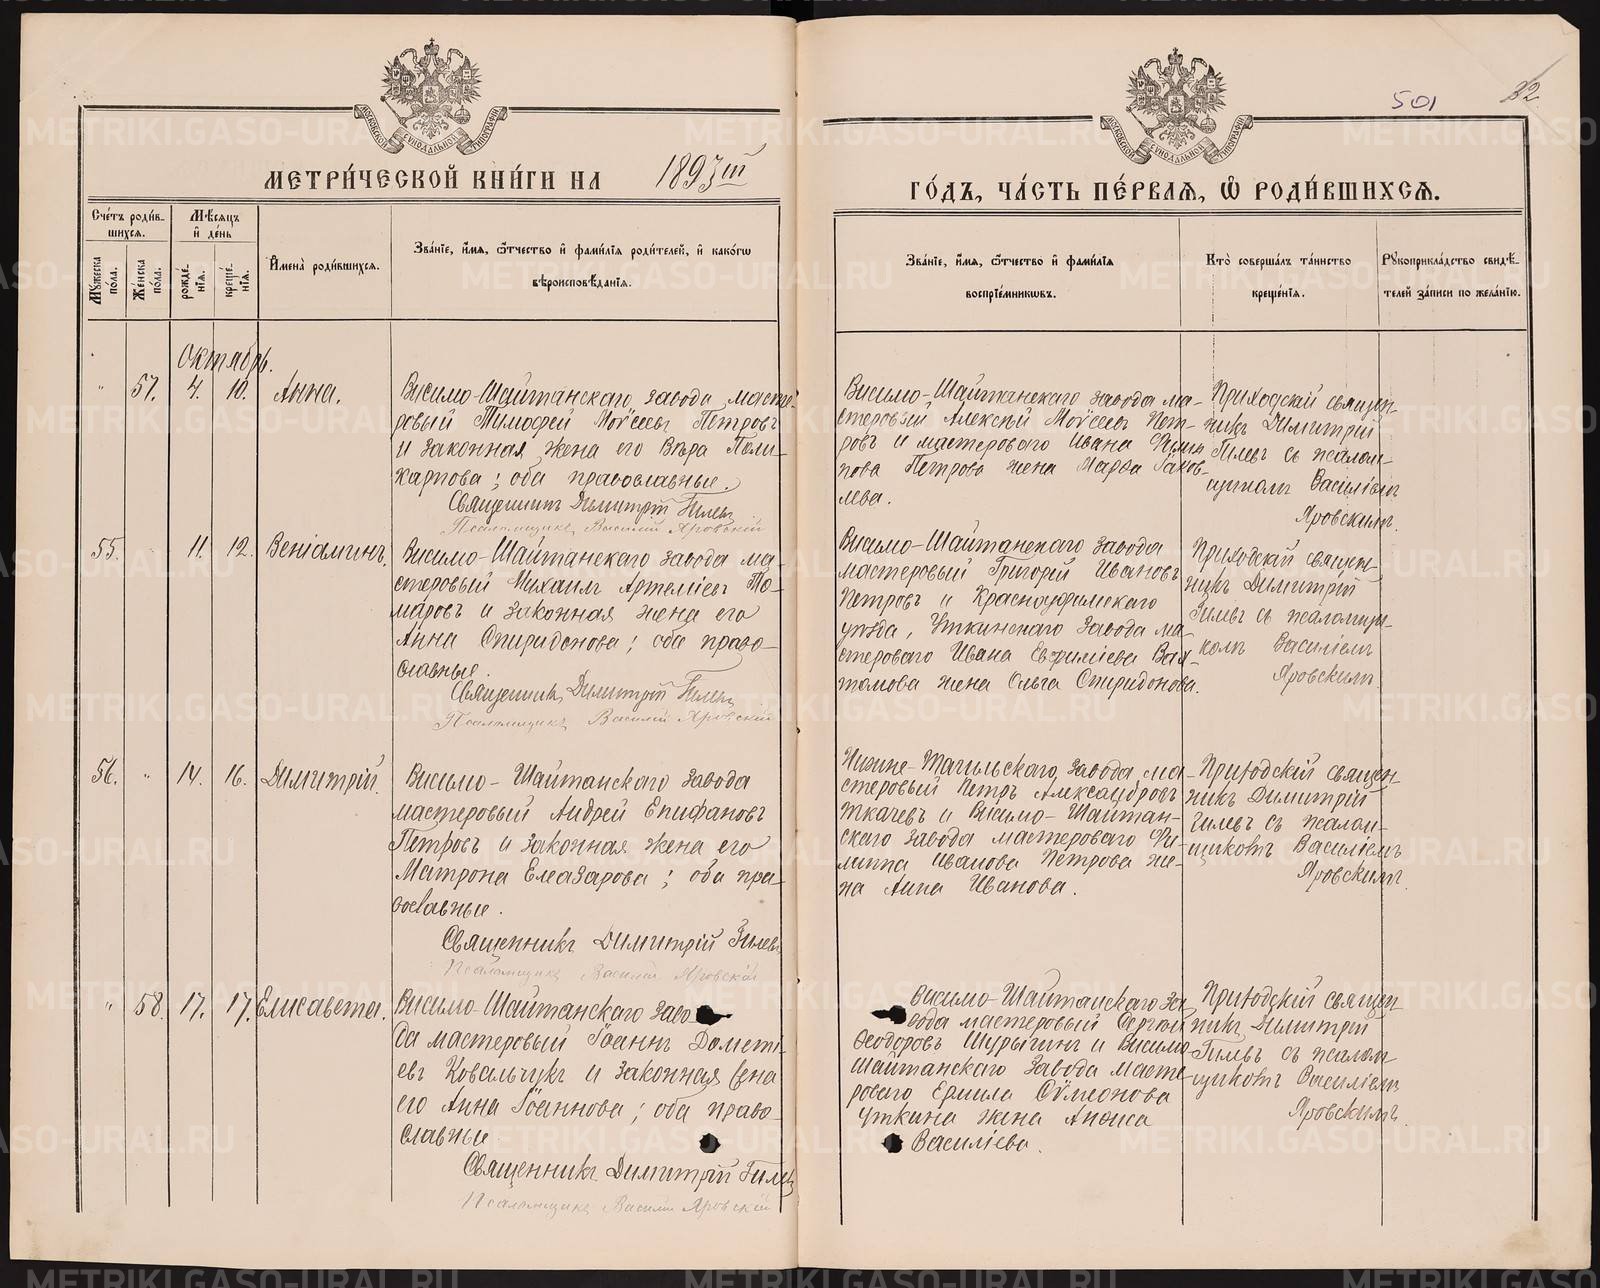 501
32
МОСКОВСКОЙ СѴНОДАЛЬНОЙ ТИПОГРАФІИ
МОСКОВСКОЙ СѴНОДАЛЬНОЙ ТИПОГРАФІИ
МЕТРИ́ЧЕСКОЙ КНИ́ГИ НА 1893 ій
ГО́ДЪ, ЧА́СТЬ ПЕ́РВАЯ, Ѡ҆ РОДИ́ВШИХСЯ.
Сче́тъ роди́в-
шихся.
Мѣсяцъ
и҆ де́нь
Мꙋжеска по́ла.
Же́нска по́ла.
рожде́-
нїя.
креще́-
нїя.
И҆мена̀ роди́вшихся.
Зва́нїе, и҆́мя, ѻ҆́тчество и҆ фами́лїя роди́телей, и҆ како́гѡ
вѣроисповѣ́данїя.
Зва́нїе, и҆́мя, ѻ҆́тчество и҆ фами́лїя
воспрїе́мникѡвъ.
Кто̀ соверша́лъ та́инство
креще́нїя.
Рꙋкоприкла́дство свидѣ́-
телей за́писи по жела́нїю.
Октябрь.
" 57. 4. 10. Анна.
Висимо-Шайтанскаго завода масте-
ровый Тимофей Моѵсеевъ Петровъ
и законная жена его Вѣра Поли-
карпова; оба православные.
Священникъ Димитрій Гилевъ
Псаломщикъ Василій Яровскій
Висимо-Шайтанскаго завода ма-
стеровый Алексѣй Моѵсеевъ Пет-
ровъ и мастероваго Ивана Филип-
пова Петрова жена Марѳа Іаков-
лева.
Приходскій священ-
никъ Димитрій
Гилевъ съ псалом-
щикомъ Василіемъ
Яровскимъ.
55. 11. 12. Веніаминъ.
Висимо-Шайтанскаго завода ма-
стеровый Михаилъ Артеміевъ То-
маровъ и законная жена его
Анна Спиридонова; оба право-
славные.
Священникъ Димитрій Гилевъ
Псаломщикъ Василій Яровскій
Висимо-Шайтанскаго завода
мастеровый Григорій Ивановъ
Петровъ и Красноуфимскаго
уѣзда, Уткинскаго завода ма-
стероваго Ивана Евфиміева Вах-
томова жена Ольга Спиридонова.
Приходскій священ-
никъ Димитрій
Гилевъ съ псаломщи-
комъ Василіемъ
Яровскимъ.
56. " 14. 16. Димитрій.
Висимо-Шайтанскаго завода
мастеровый Андрей Епифановъ
Петровъ и законная жена его
Матрона Елеазарова; оба пра-
вославные.
Священникъ Димитрій Гилевъ
Псаломщикъ Василій Яровскій
Нижне-Тагильскаго завода ма-
стеровый Петръ Александровъ
Ткачевъ и Висимо-Шайтан-
скаго завода мастероваго Фи-
липпа Иванова Петрова же-
на Анна Иванова.
Приходскій священ-
никъ Димитрій
Гилевъ съ псалом-
щикомъ Василіемъ
Яровскимъ.
" 58. 17. 17. Елисавета.
Висимо-Шайтанскаго заво-
да мастеровый Іоаннъ Дометі-
евъ Ковальчукъ и законная жена
его Анна Іоаннова; оба право-
славные
Священникъ Димитрій Гилевъ
Псаломщикъ Василій Яровскій
Висимо-Шайтанскаго за-
вода мастеровый Сергій
Ѳеодоровъ Шурыгинъ и Висимо-
Шайтанскаго завода масте-
роваго Ермила Сѵмеонова
Уткина жена Анѳиса
Василіева.
Приходскій священ-
никъ Димитрій
Гилевъ съ псалом-
щикомъ Василіемъ
Яровскимъ.
METRIKI.GASO-URAL.RU